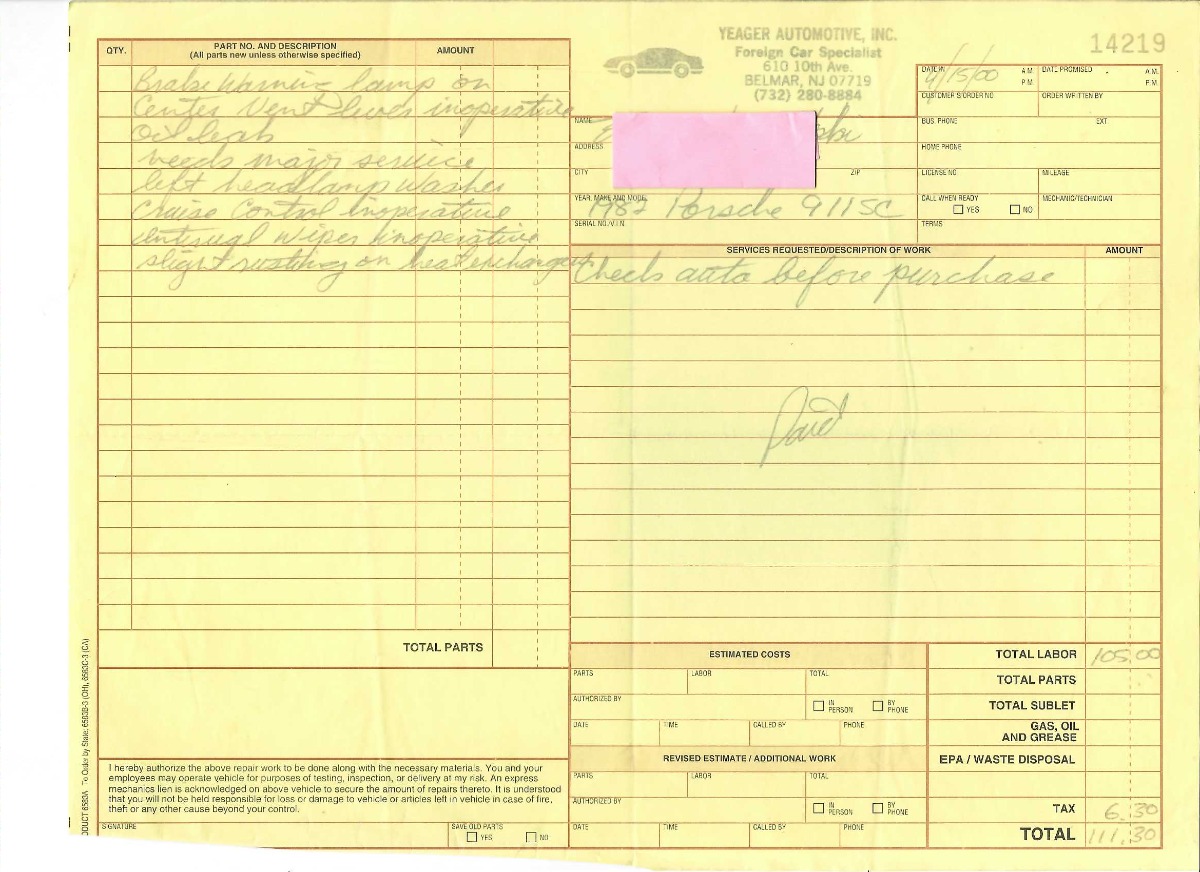 YEAGER AUTOMOTIVE, INC.
Foreign Car Specialist
610 10th Ave.
BELMAR, NJ 07719
(732) 280-8884
14219
QTY.
PART NO. AND DESCRIPTION
(All parts new unless otherwise specified)
AMOUNT
Brake Warning lamp on
Center Vent lever inoperative
Oil leak
needs major service
left headlamp washer
Cruise Control inoperative
Wiper inoperative
slight rusting on heat exchanger
TOTAL PARTS
DATE IN
/15/00
A.M.
P.M.
DATE PROMISED
A.M.
P.M.
CUSTOMER'S ORDER NO.
ORDER WRITTEN BY
NAME
BUS. PHONE
EXT
ADDRESS
HOME PHONE
CITY
ZIP
LICENSE NO.
MILEAGE
YEAR, MAKE AND MODEL
1982 Porsche 911SC
CALL WHEN READY
YES
NO
MECHANIC/TECHNICIAN
SERIAL NO./V.I.N.
TERMS
SERVICES REQUESTED/DESCRIPTION OF WORK
AMOUNT
Check auto before purchase
Paid
ESTIMATED COSTS
PARTS
LABOR
TOTAL
AUTHORIZED BY
IN PERSON
BY PHONE
DATE
TIME
CALLED BY
PHONE
REVISED ESTIMATE / ADDITIONAL WORK
PARTS
LABOR
TOTAL
AUTHORIZED BY
IN PERSON
BY PHONE
DATE
TIME
CALLED BY
PHONE
TOTAL LABOR 105.00
TOTAL PARTS
TOTAL SUBLET
GAS, OIL
AND GREASE
EPA / WASTE DISPOSAL
TAX 6.30
TOTAL 111.30
I hereby authorize the above repair work to be done along with the necessary materials. You and your
employees may operate vehicle for purposes of testing, inspection, or delivery at my risk. An express
mechanics lien is acknowledged on above vehicle to secure the amount of repairs thereto. It is understood
that you will not be held responsible for loss or damage to vehicle or articles left in vehicle in case of fire,
theft or any other cause beyond your control.
SIGNATURE
SAVE OLD PARTS
YES
NO
DUCT 6583A To Order by State: 6583B-3 (OH), 6583C-3 (CA)